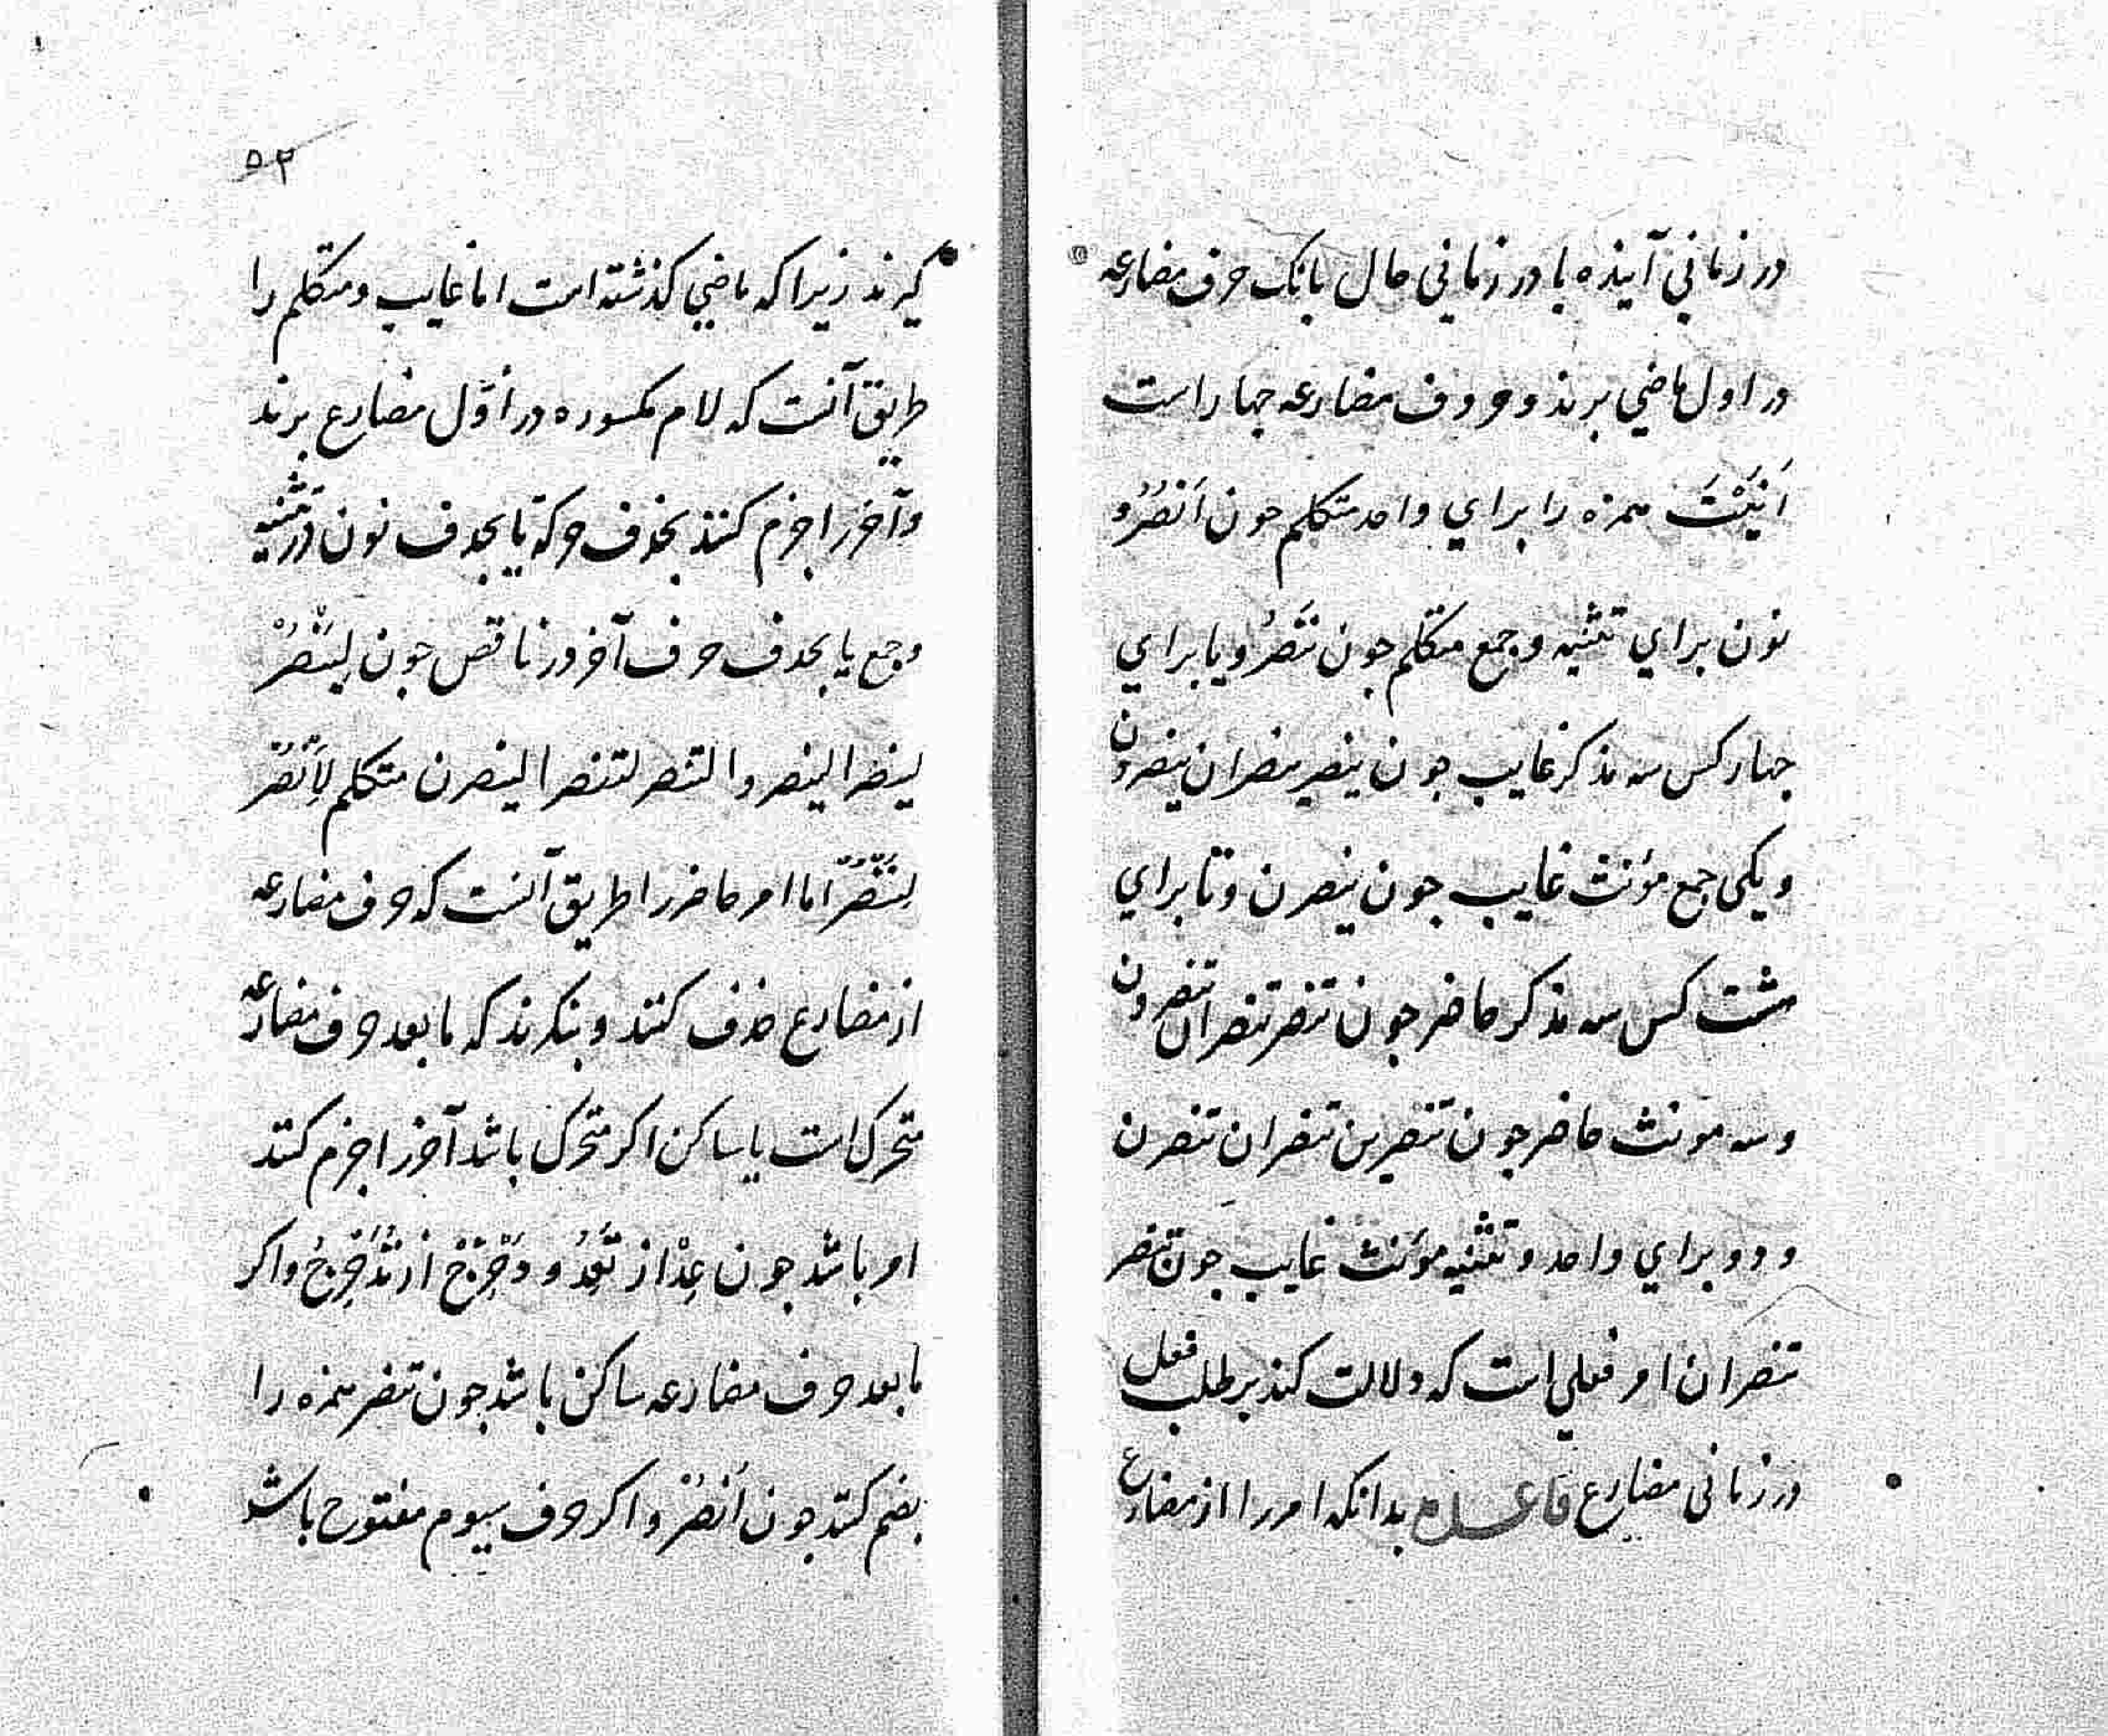 در زماني آینده یا در زماني حال بانک حرف مضارعه
در اول ماضي برند و حروف مضارعه جهار است
اَنَیْتَ همزه را براي واحد متکلم جون اَنْصُرُ و
نون براي تثنیه و جمع متکلم جون نَنْصُرُ و یا براي
جهار کس سه مذکر غایب جون ینصر ینصران ینصرون
و یکی جمع مؤنث غایب جون ینصرن و تا براي
هشت کس سه مذکر حاضر جون تنصر تنصران تنصرون
و سه مونث حاضر جون تنصرین تنصران تنصرن
و دو براي واحد و تثنیه مؤنث غایب جون تنصر
تنصران امر فعلي است که دلالت کند بر طلب فعل
در زمانی مضارع قاعده بدانکه امر را از مضارع
۵۲
کیرند زیرا که ماضي کذشته است اما غایب و متکلم را
طریق آنست که لام مکسوره در اوّل مضارع برند
و آخر را جزم کنند بحذف حرکة یا بحذف نون در تثنیه
و جمع یا بحذف حرف آخر در ناقص جون لِیَنْصُرْ
لینصرا لینصروا لتنصر لتنصرا لینصرن متکلم لِاَنْصُرْ
لِنَنْصُرْ اما امر حاضر را طریق آنست که حرف مضارعه
از مضارع حذف کنند و بنکرند که ما بعد حرف مضارعه
متحرک است یا ساکن اکر متحرک باشد آخر را جزم کنند
امر باشد جون عِدْ از تَعِدُ و دَحْرِجْ از تُدَحْرِجُ و اکر
ما بعد حرف مضارعه ساکن باشد جون تنصر همزه را
بضم کنند جون اُنْصُرْ و اکر حرف سیوم مفتوح باشد